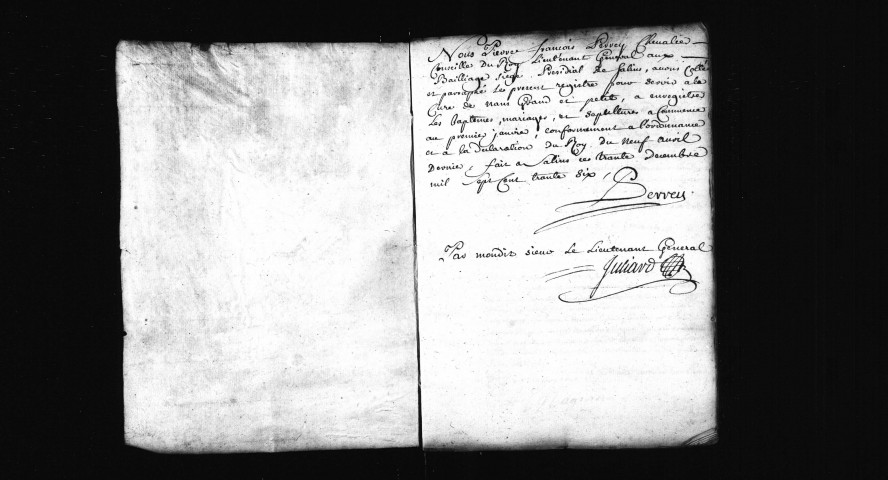 Nous Pierre françois Perrey Chevalier
Conseille du Roy Lieutenant General aux
Bailliage Siege Presidial de Salins, avons Cotté
et paraphé Les present registre pour servir a la
Cure de nans Grand et petit, a enregistre
Les baptemes, mariages, et sepultures a Commence
au premier janvie, conformement a l'ordonnance
et a la Declaration du Roy du neuf avril
Dernie, fait a Salins ces trante decembre
mil Sept Cent trante six,
Perrey
Par mondit sieur Le Lieutenant General